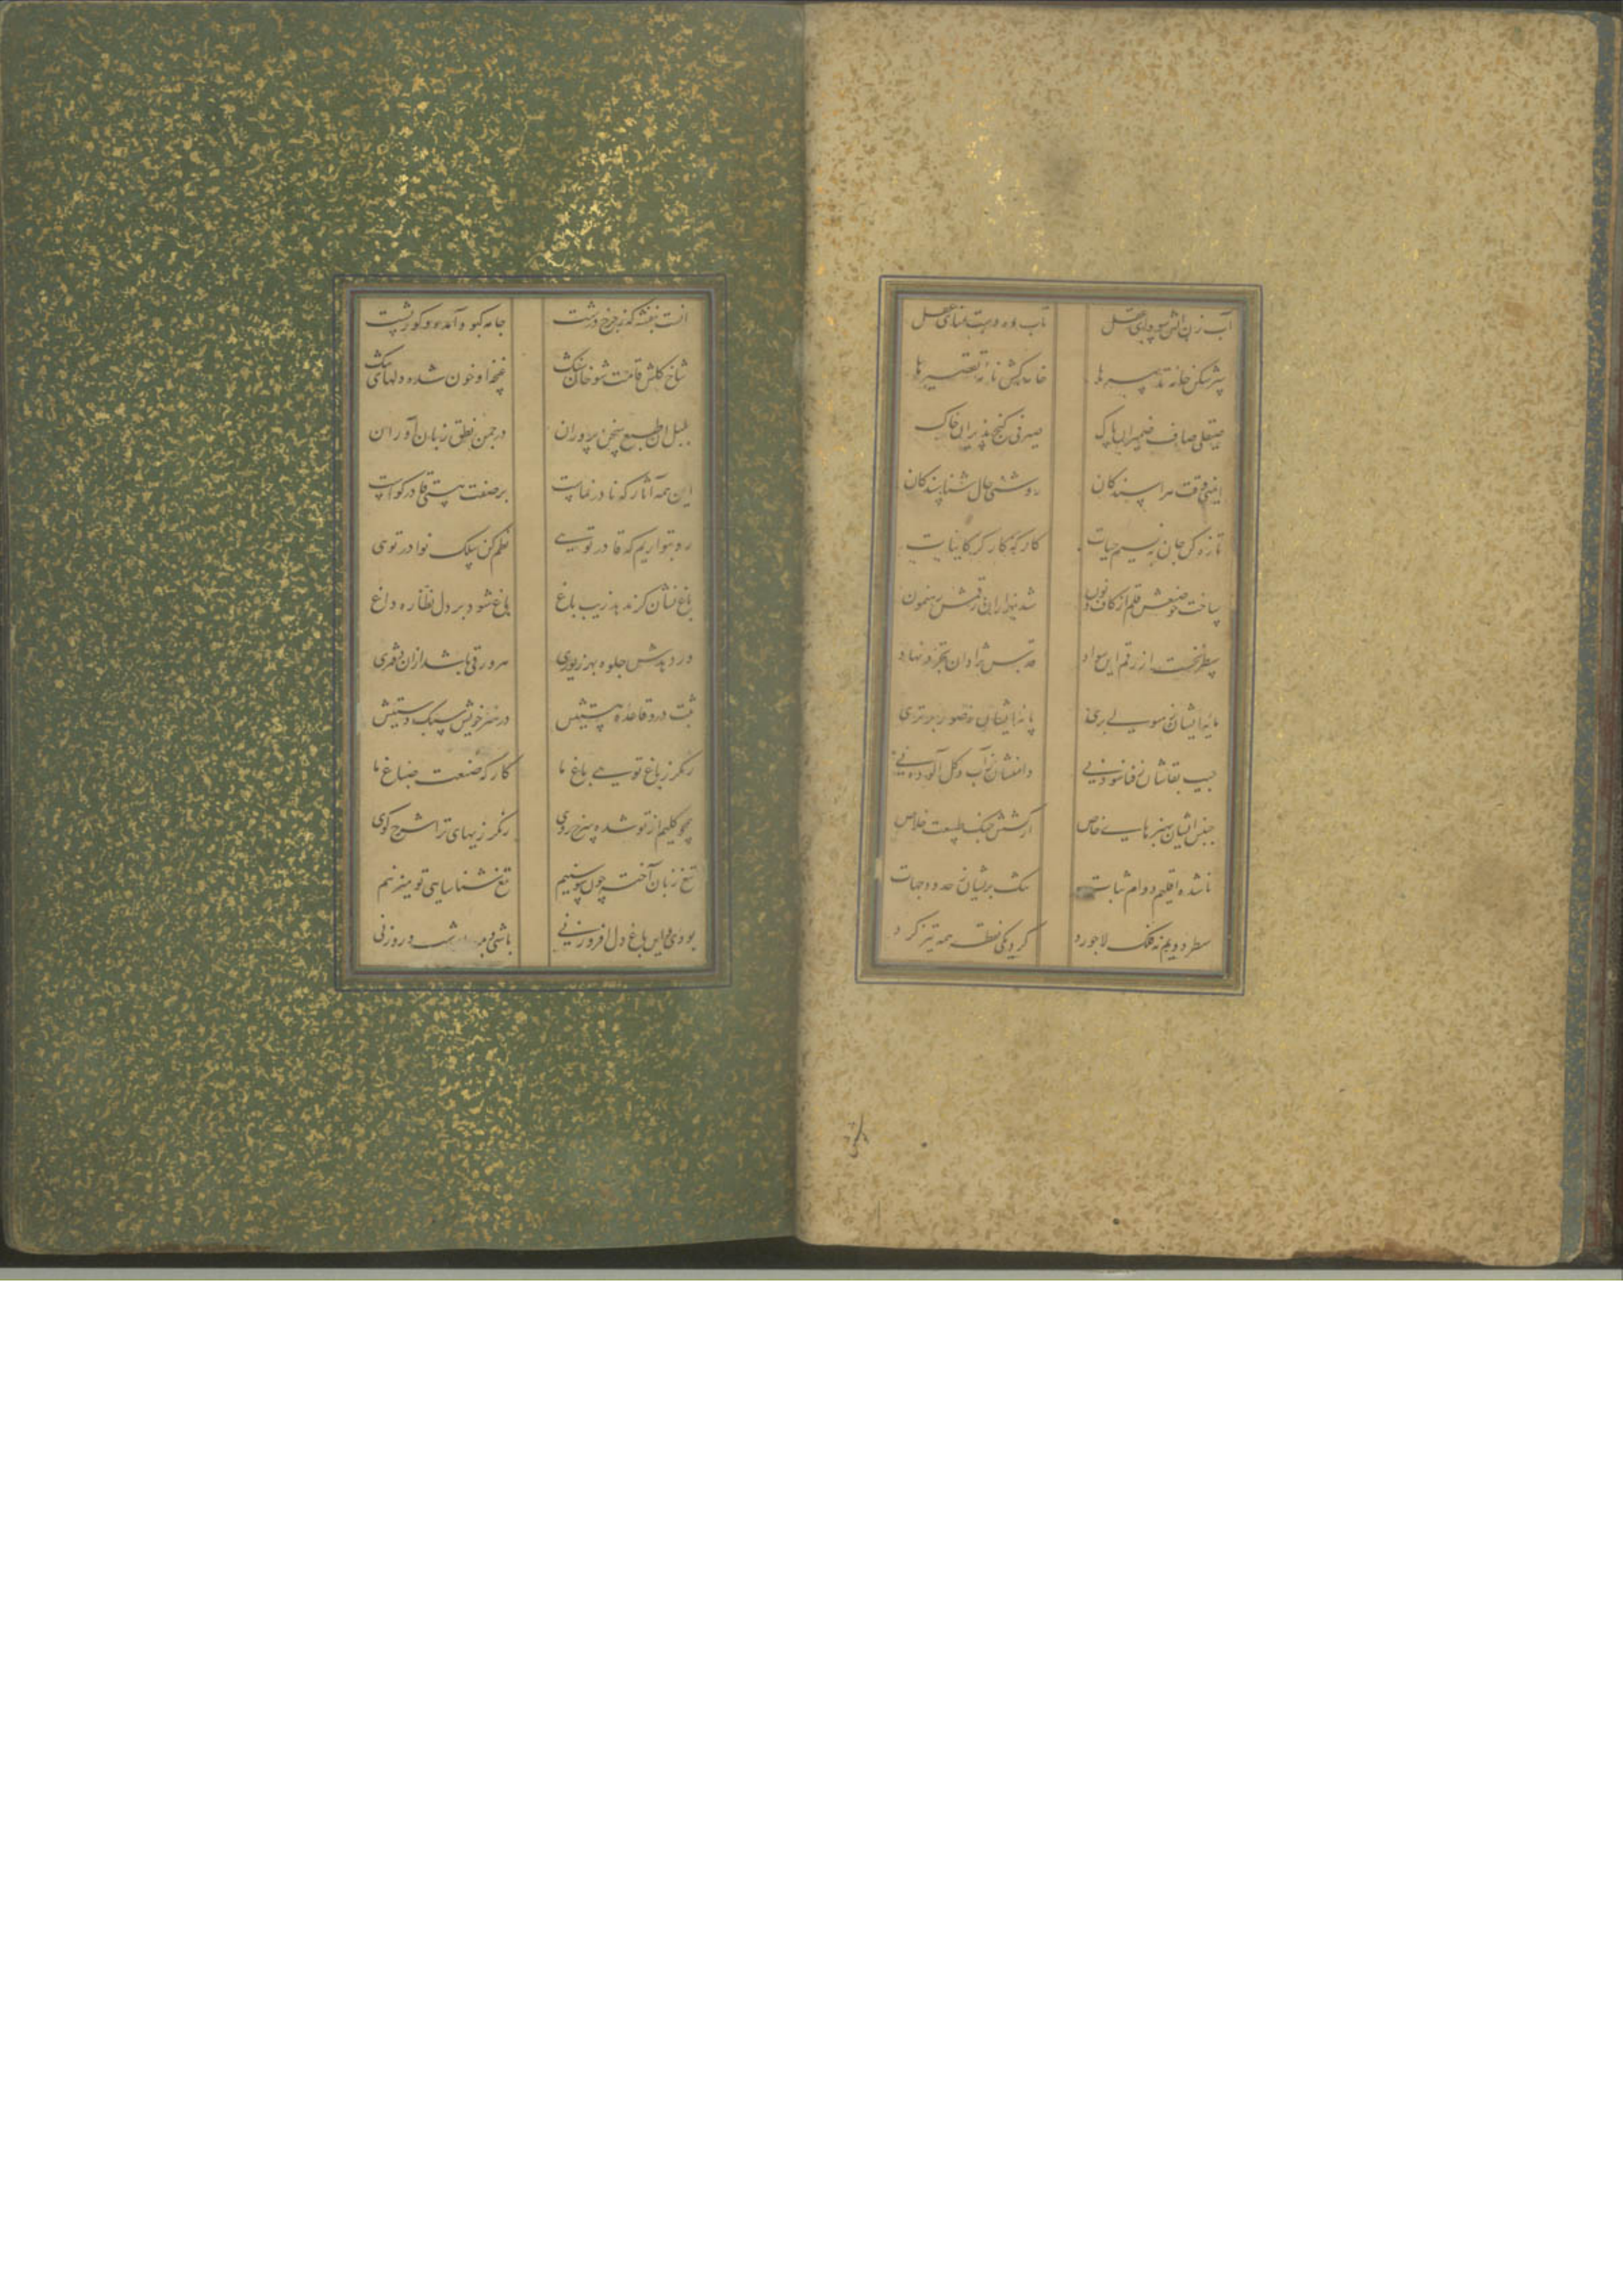 آب زن آتش سودای عقل تاب ده دست عقل
پرشکن خانه تدبیرها خامه کش نامه تقصیرها
صیقلی صاف ضمیران پاک صیرفی گنج پذیران خاک
ایمنی وقت هراسندگان روشنی حال شناسندگان
تازه کن جان به نسیم حیات کارگه کارگر کاینات
ساخت چو صنعش قلم از کاف و نون شد بهزاران رقمش رهنمون
سطر نخست از رقم این سواد قدس نژادان تجرد نهاد
مایه ایشان ز هیولی بری پایه ایشان ز صور برتری
جیب بقاشان ز فنا سوده نی دامنشان ز آب و گل آلوده نی
جنس ایشان بهنرهای خاص از کشش جنگ طبیعت خلاص
ناشده اقلیم دوام ثبات تنگ بریشان ز حدود و جهات
سطر دویم نه فلک لاجورد گرد یکی نقطه همه تیزگرد
بنفشه که ز چرخ درشت جامه کبود آمده و کوژپشت
شاخ گلش قامت شوخان شنگ غنچه او خون شده دلهای تنگ
بلبل آن طبع سخن پروران در چمن نطق زبان آوران
این همه آثار که نادر نماست بر صفت هستی قادر گواست
رو بتو آریم که قادر تویی نظم کن سلک نوادر تویی
باغ نشان گر ندهد زیب باغ باغ شود بر دل نظاره داغ
ور دهدش جلوه بهر زیوری هر ورقی باشد ازان دفتری
ثبت درو قاعده هستیش در هنر خویش سبک دستیش
رنگرز باغ تویی باغ ما کارگه صنعت صباغ ما
همچو گلیم از تو شده سرخ روی رنگرزیهای ترا شرح گوی
تیغ زبان آخته چون سوسنیم تیغ شناسایی تو میزنیم
بودی و این باغ دل افروز نی باشی و شب و روز نی